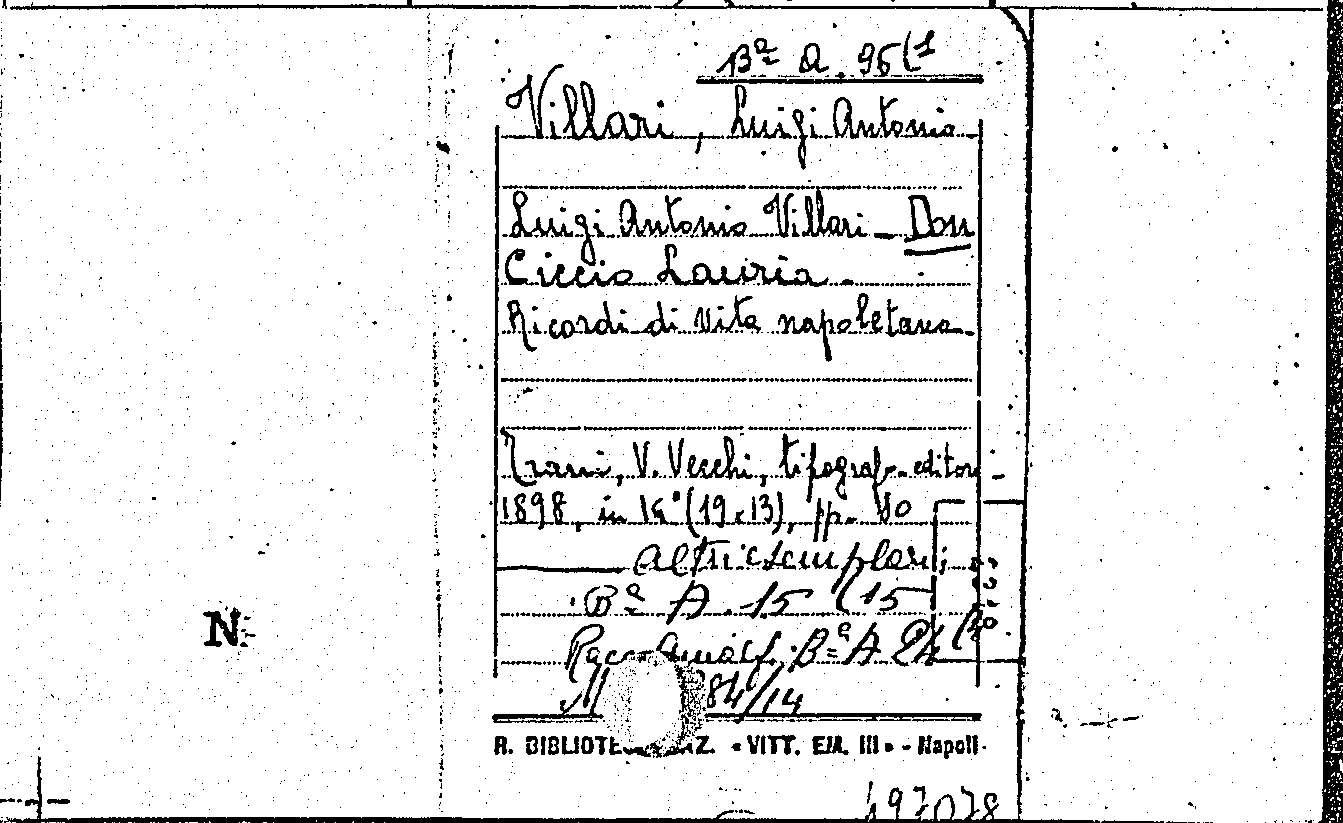 Bª A. 95(1
Villari, Luigi Antonio
Luigi Antonio Villari - Don
Ciccio Lauria -
Ricordi di vita napoletana -
Trani, V. Vecchi, tipograf-editore
1898, in 16° (19x13), pp. 80
Altri esemplari:
Bª A. 15 (15
Racc. Bª A 24
84/14
R. BIBLIOTE Z. «VITT. EM. III» - Napoli
N
497078